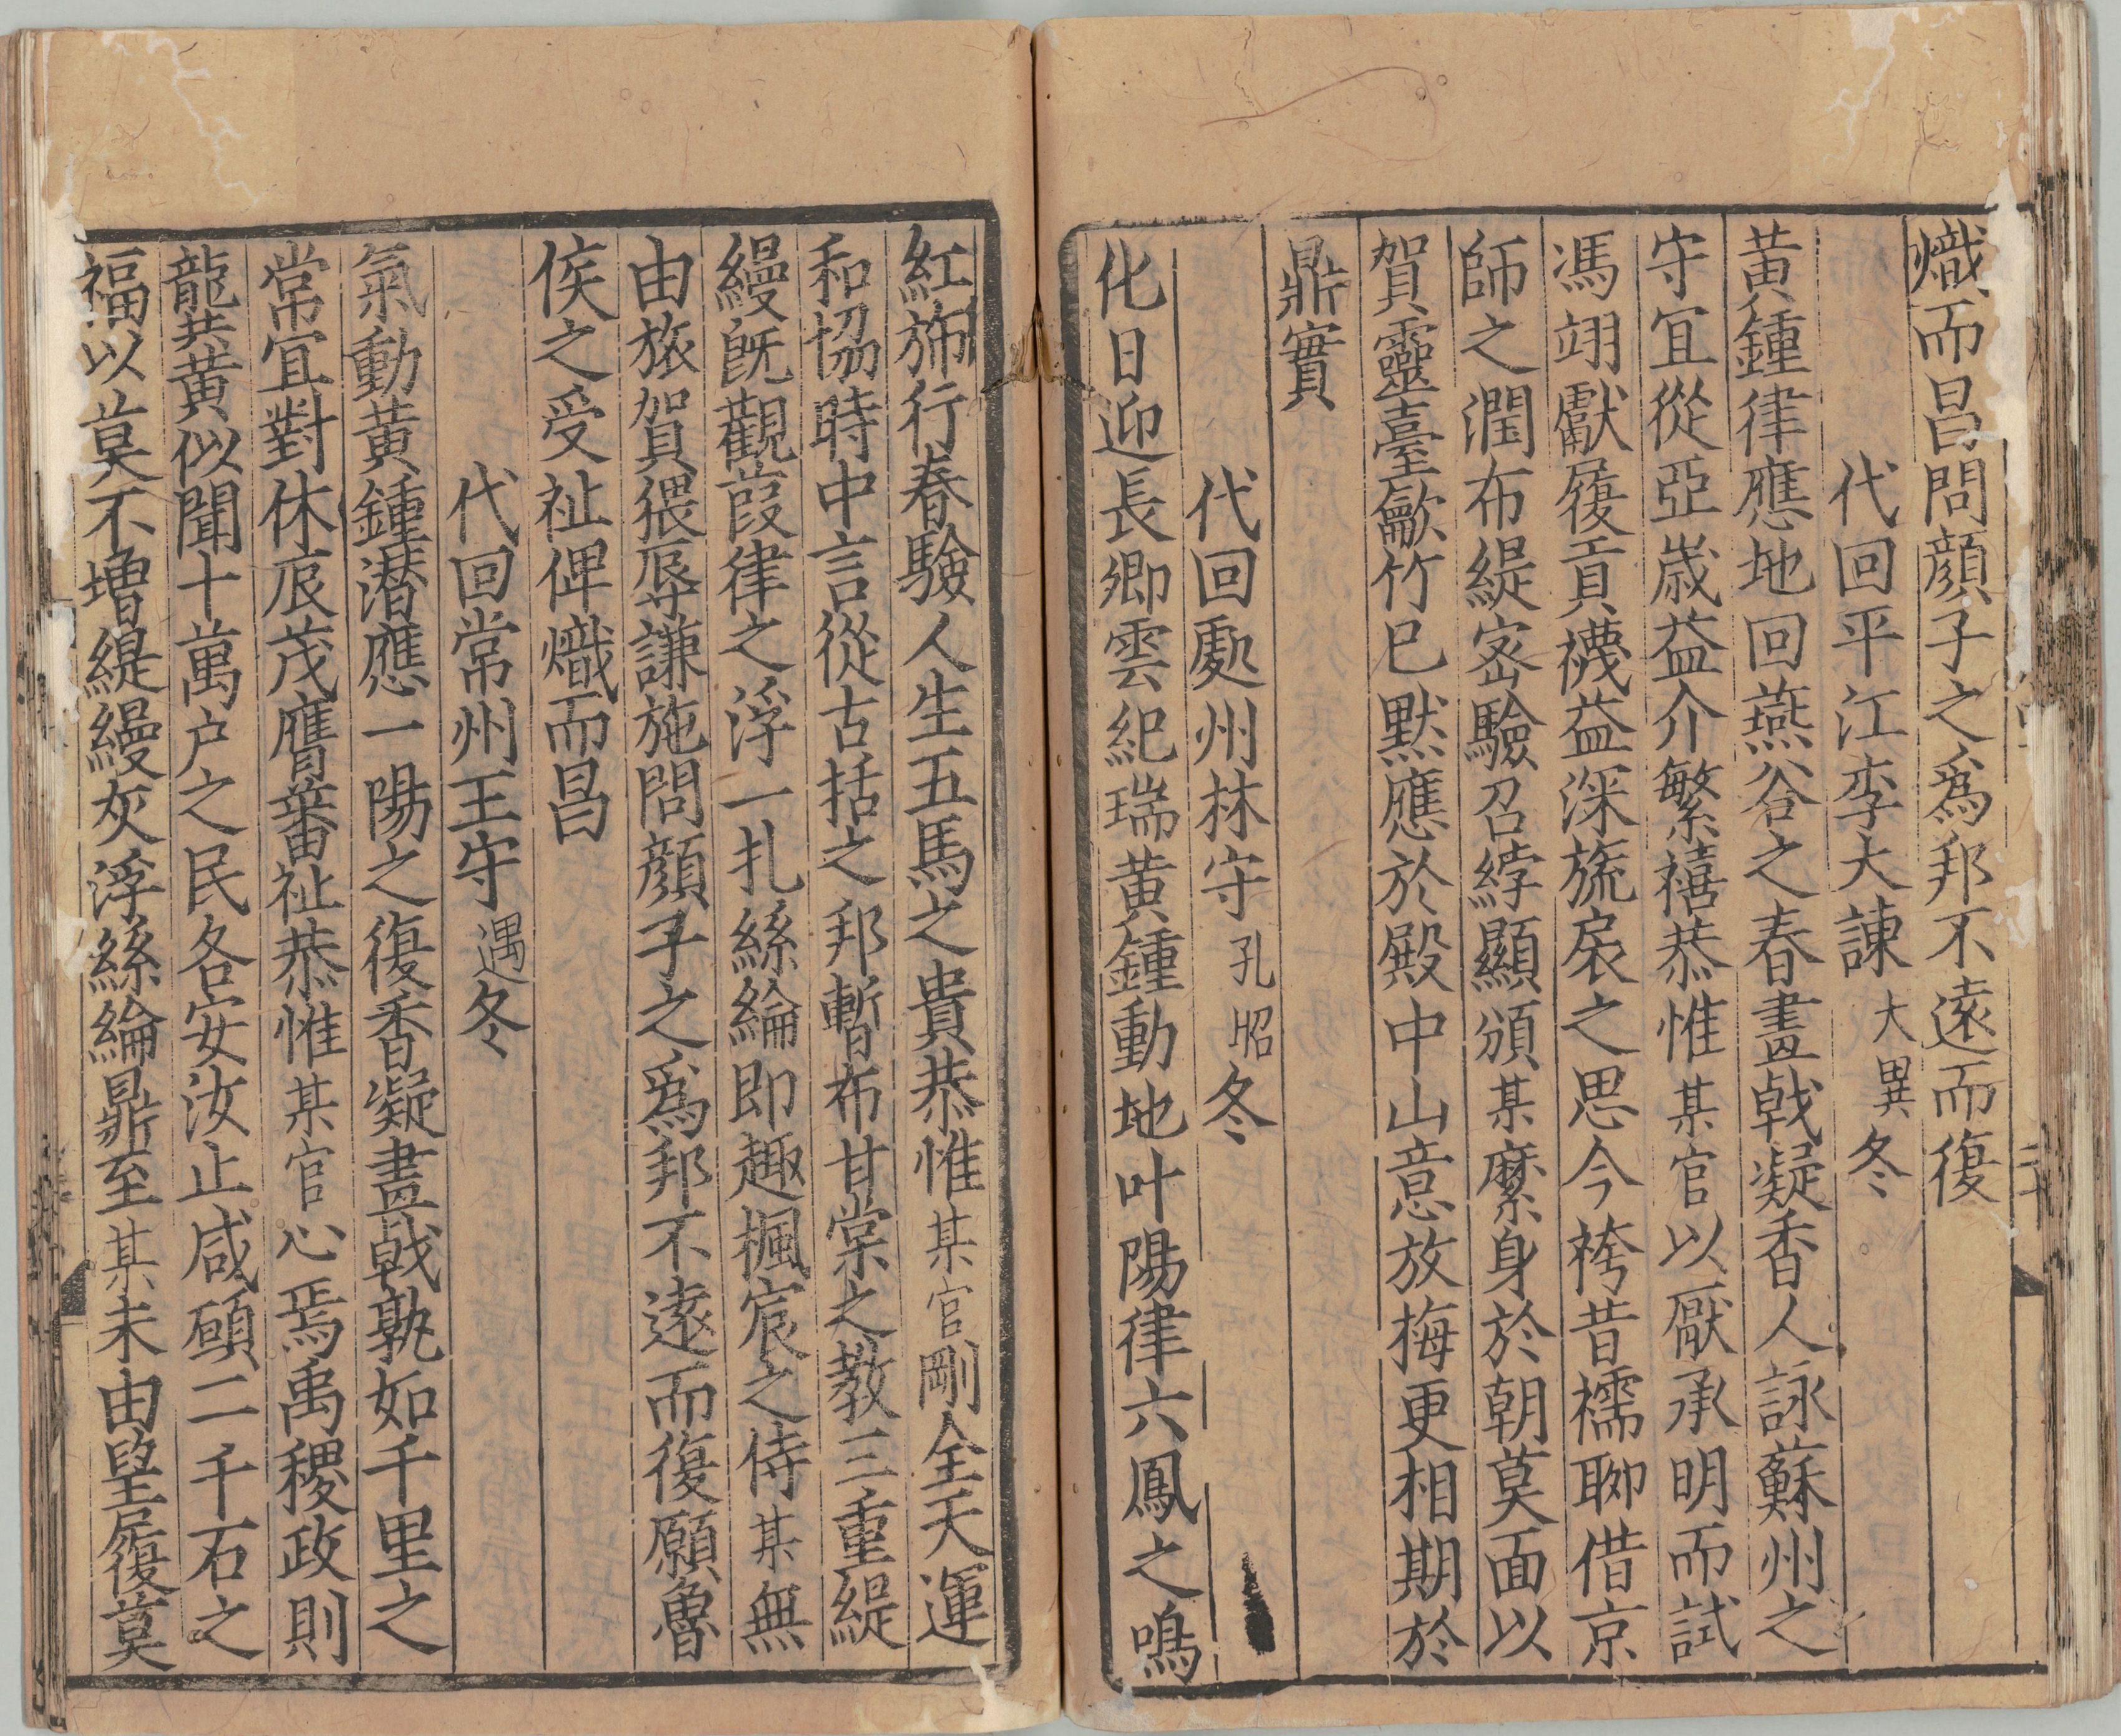 熾而昌問顔子之爲邦不遠而復
代回平江李大諌大異冬
黄鍾律應地回燕谷之春畫戟凝香人詠蘇州之
守宜從亞嵗益介繁禧恭惟某官以厭承明而試
馮翊獻履貢襪益深旒扆之思今袴昔襦聊借京
師之潤布緹宻驗召綍顯頒某縻身於朝莫面以
賀靈臺龡竹已默應於殿中山意放梅更相期於
鼎實
代回處州林守孔昭冬
化日迎長卿雲紀瑞黄鍾動地叶陽律六鳳之鳴
紅斾行春驗人生五馬之貴恭惟某官剛全天運
和協時中言從古括之邦暫布甘棠之教三重緹
縵旣觀葭律之浮一扎絲綸即趣楓宸之侍某無
由旅賀猥辱謙施問顔子之爲邦不遠而復願魯
侯之受祉俾熾而昌
代回常州王守遇冬
氣動黄鍾潜應一陽之復香凝畫戟孰如千里之
常宜對休辰茂膺蕃祉恭惟某官心焉禹稷政則
龔黄似聞十萬户之民各安汝止咸碩二千石之
福以莫不增緹縵灰浮絲綸鼎至某未由望履莫